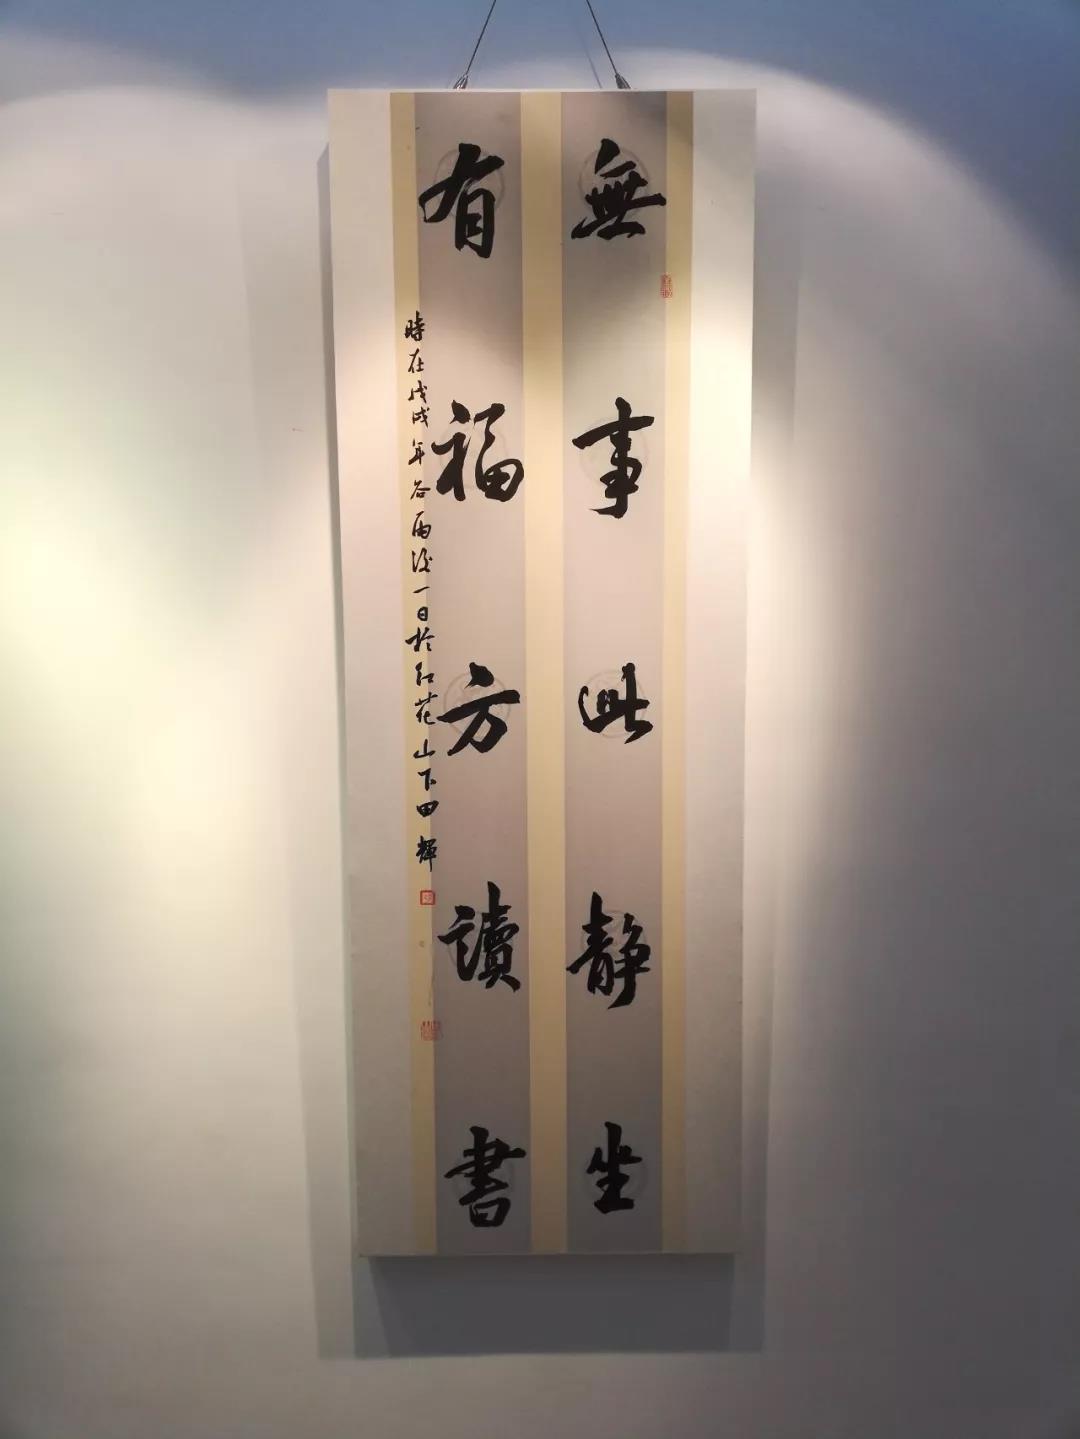 無事此靜坐
有福方讀書
時在戊戌年谷雨後一日於紅花山下田輝